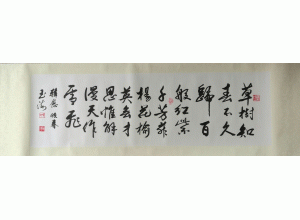 草樹知
春不久
歸百
般紅紫
斗芳菲
楊花榆
莢無才
思惟解
漫天作
雪飛
韓愈 晚春